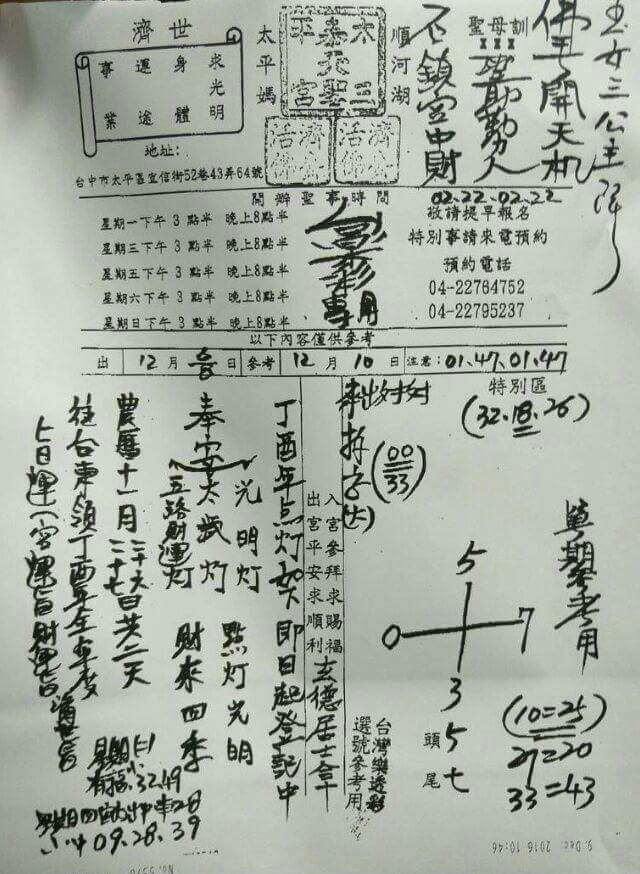 玉女三公主降
佛手開天机
聖母訓
不鎖宮中財
順河湖
太天三
泰天聖
平宮
濟公活佛
濟公活佛
太平媽
濟世
求光明
身體
運途
事業
地址:
台中市太平區宜信街52巷43弄64號
開辦聖事時間
星期一下午 3 點半 晚上8點半
星期三下午 3 點半 晚上8點半
星期五下午 3 點半 晚上8點半
星期六下午 3 點半 晚上8點半
星期日下午 3 點半 晚上8點半
專用
02.22.02.22
敬請提早報名
特別事請來電預約
預約電話
04-22764752
04-22795237
以下內容僅供參考
出 12 月 日 參考 12 月 10 日 注意: 01.47.01.47
特別區
(32.18.26)
單期參考用
5
0 7
3
(10=25)
29=20
33=43
頭 5
尾 七
台灣樂透彩
選號參考用
(00
33)
入宮參拜求賜福
出宮平安求順利
玄德居士拿
丁酉年点灯如下即日起登記中
光明灯 點灯光明
奉安太歲灯 財來四季
五路財運灯
農曆十一月二十六日共二天
二十七
往台東領丁酉年全年度
七日運一宮運旨財運旨
有福: 32.49
09.28.39
9. Dec. 2016 10:46
No. 5570